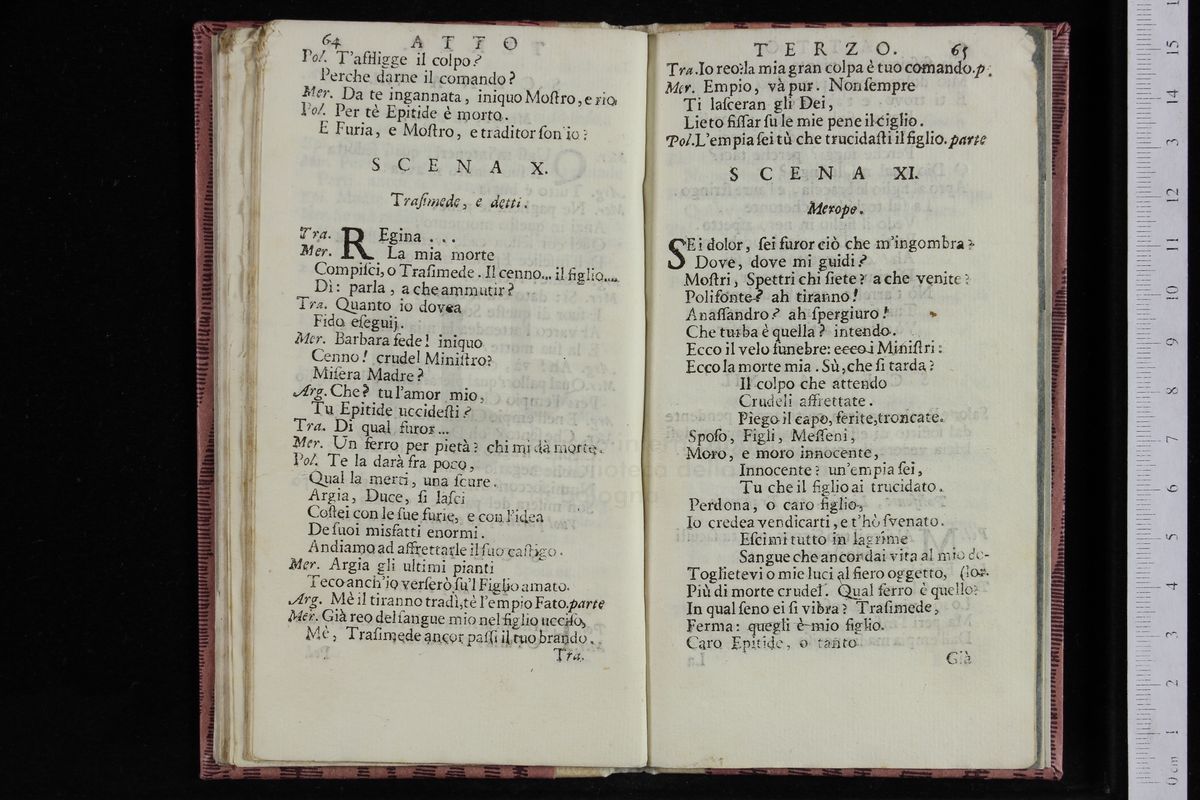 64 ATTO
Pol. T'affligge il colpo?
Perche darne il comando?
Mer. Da te ingannata, iniquo Moſtro, e rio.
Pol. Per tè Epitide è morto.
E Furia, e Moſtro, e traditor ſon io?
SCENA X.
Traſimede, e detti.
Tra. REgina . . .
Mer. La mia morte
Compiſci, o Traſimede. Il cenno... il figlio....
Dì: parla, a che ammutir?
Tra. Quanto io dovea
Fido eſeguij.
Mer. Barbara fede! iniquo
Cenno! crudel Miniſtro?
Miſera Madre?
Arg. Che? tu l'amor mio,
Tu Epitide uccideſti?
Tra. Di qual furor...
Mer. Un ferro per pietà? chi mi dà morte.
Pol. Te la darà fra poco,
Qual la merti, una ſcure.
Argia, Duce, ſi laſci
Coſtei con le ſue furie, e con l'idea
De ſuoi misfatti enormi.
Andiamo ad affrettarle il ſuo caſtigo.
Mer. Argia gli ultimi pianti
Teco anch'io verſerò ſu'l Figlio amato.
Arg. Mè il tiranno tradì, tè l'empio Fato. parte
Mer. Già reo del ſangue mio nel figlio ucciſo,
Mè, Traſimede ancor paſſi il tuo brando.
Tra.
TERZO. 65
Tra. Io reo? la mia gran colpa è tuo comando. p.
Mer. Empio, và pur. Non ſempre
Ti laſceran gli Dei,
Lieto fiſſar ſu le mie pene il ciglio.
Pol. L'empia ſei tù che trucidaſti il figlio. parte
SCENA XI.
Merope.
SEi dolor, ſei furor ciò che m'ingombra?
Dove, dove mi guidi?
Moſtri, Spettri chi ſiete? a che venite?
Polifonte? ah tiranno!
Anaſſandro? ah ſpergiuro!
Che turba è quella? intendo.
Ecco il velo funebre: ecco i Miniſtri:
Ecco la morte mia. Sù, che ſi tarda?
Il colpo che attendo
Crudeli affrettate.
Piego il capo, ferite, troncate.
Spoſo, Figli, Meſſeni,
Moro, e moro innocente,
Innocente? un'empia ſei,
Tu che il figlio ai trucidato.
Perdona, o caro figlio,
Io credea vendicarti, e t'hò ſvenato.
Eſcimi tutto in lagrime
Sangue che ancor dai vita al mio do-
Toglietevi o mie luci al fiero oggetto, (lor.
Più di morte crudel. Qual ferro è quello?
In qual ſeno ei ſi vibra? Traſimede,
Ferma: quegli è mio figlio.
Caro Epitide, o tanto
Già